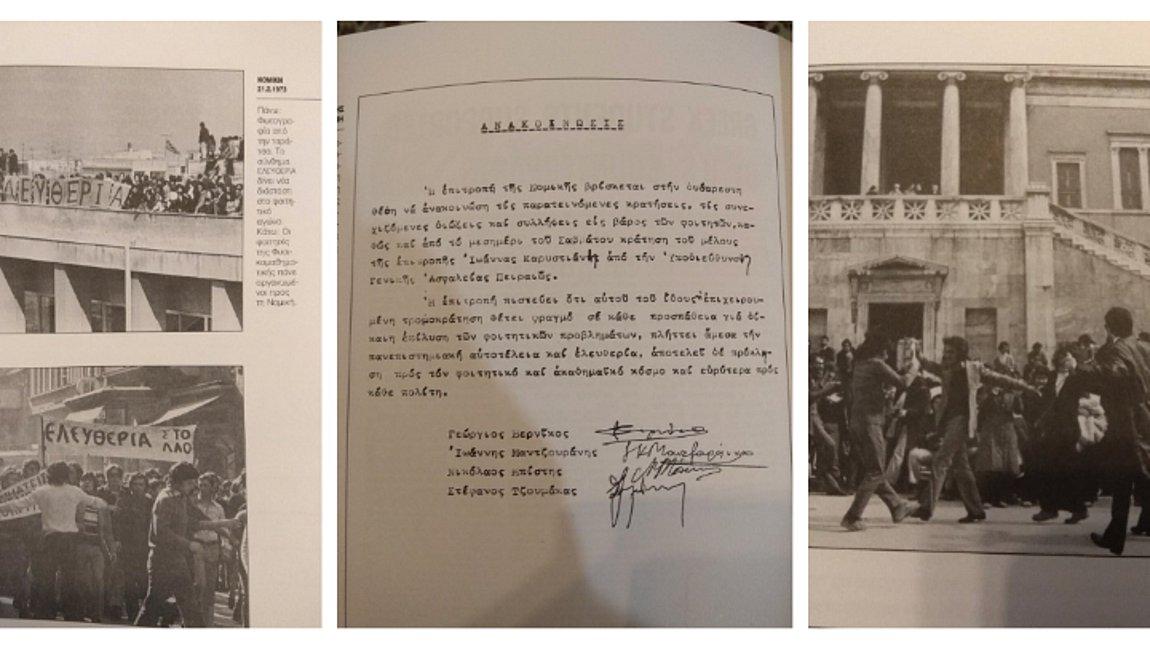 ΕΛΕΥΘΕΡΙΑ
ΝΟΜΙΚΗ
21.2.1973
Πάνω:
Φωτογρα-
φία από
την ταρά-
τσα. Το
σύνθημα
ΕΛΕΥΘΕΡΙΑ
δίνει νέα
διάσταση
στο φοιτη-
τικό
αγώνα.
Κάτω: Οι
φοιτητές
της Φυσι-
κομαθημα-
τικής πάνε
οργανωμέ-
νοι προς
τη Νομική.
ΕΛΕΥΘΕΡΙΑ ΣΤΟ
ΛΑΟ
ΑΝΑΚΟΙΝΩΣΙΣ
Ἡ ἐπιτροπή τῆς Νομικῆς βρίσκεται στήν δυσαρεστη
θέση νά ἀνακοινώση τίς παρατεινόμενες κρατήσεις, τίς συνε-
χιζόμενες διώξεις καί συλλήψεις εἰς βάρος τῶν φοιτητῶν, κα-
θώς καί ἀπό τό μεσημέρι τοῦ Σαββάτου κράτηση τοῦ μέλους
τῆς ἐπιτροπῆς Ἰωάννας Καρυστιάνη ἀπό τήν Ὑποδιεύθυνση
Γενικῆς Ἀσφαλείας Πειραιῶς.
Ἡ ἐπιτροπή πιστεύει ὅτι αὐτοῦ τοῦ εἴδους ἐπιχειρου-
μένη τρομοκράτηση θέτει φραγμό σέ κάθε προσπάθεια γιά δί-
καιη ἐπίλυση τῶν φοιτητικῶν προβλημάτων, πλήττει ἄμεσα τήν
πανεπιστημιακή αὐτοτέλεια καί ἐλευθερία, ἀποτελεῖ δέ πρόκλη-
ση πρός τόν φοιτητικό καί ἀκαδημαϊκό κόσμο καί εὐρύτερα πρός
κάθε πολίτη.
Γεώργιος Βερνῖκος
Ἰωάννης Μαντζουράνης
Νικόλαος Μπίστης
Στέφανος Τζουμάκας